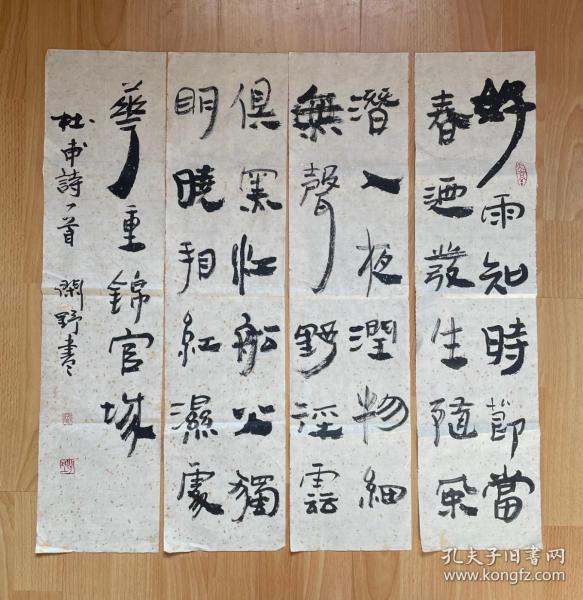 好雨知時節當
春迺發生隨風
潛入夜潤物細
無聲野徑雲
俱黑江船火獨
明曉看紅濕處
華重錦官城
杜甫詩一首 野書
孔夫子旧书网
www.kongfz.com